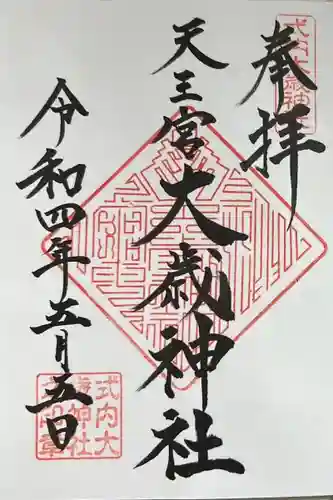 奉拝
式内大歳神社
天王宮大歳神社
令和四年五月五日
式内大歳神社之印章